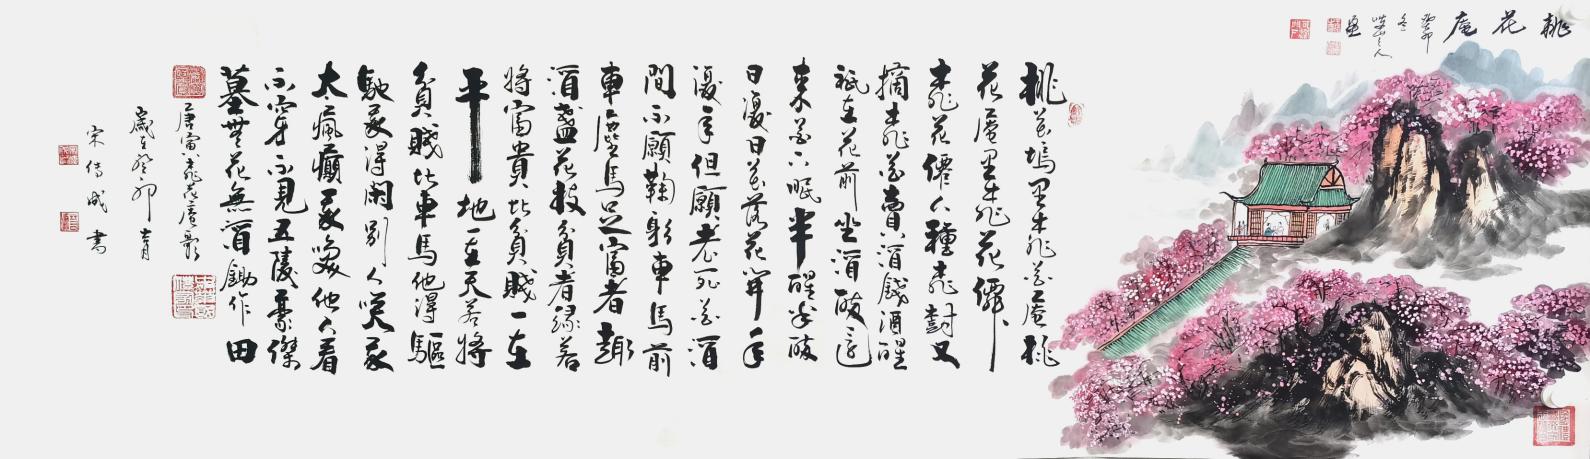 桃花庵
癸卯
冬
山人
画
桃花塢里桃花庵桃
花庵里桃花僊
桃花僊人種桃樹又
摘桃花賣酒錢酒醒
祗在花前坐酒醉還
來花下眠半醒半醉
日復日花落花開年
復年但願老死花酒
間不願鞠躬車馬前
車塵馬足富者趣
酒盞花枝貧者緣若
將富貴比貧賤一在
平地一在天若將
貧賤比車馬他得驅
馳我得閑別人咲我
太瘋癲我咲他人看
不穿不見五陵豪傑
墓無花無酒鋤作田
唐寅桃花庵歌
歲在癸卯
宋傳成書